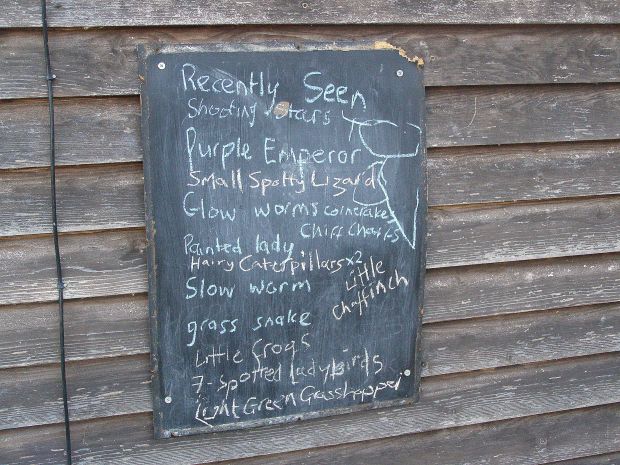 Recently Seen
Shooting stars
Purple Emperor
Small Spotty Lizard
Glow worms corncrake
Chiff Chaffs
Painted lady
Hairy Caterpillars x2
Little
chaffinch
Slow worm
grass snake
Little Frogs
7-Spotted Ladybirds
Light Green Grasshopper